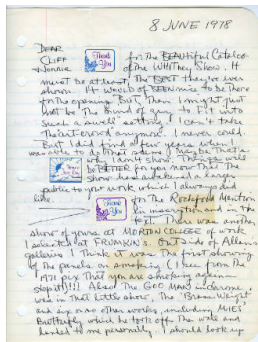 8 JUNE 1978
DEAR
CLIFF
Thank
You
for the BEAUTIFUL Catalog
of the WHITNEY Show. It
must be at least, the BEST they've ever
shown. It would of SEEN nice to be there
for the opening. But, Then I might just
not be the kind of guy to fit into
such a swell setting. I can't take
the art crowd anymore. I never could.
But I did find a few years when I
was able to do that sort of thing. That's
why I am 4 show. Things will
be BETTER for you now that the
show has introduced a larger
public to your work which I always did
like.
Thank
You
for the Rockford Mention
the inscription and
to it. There was another
show of yours at MORTON COLLEGE of work
I selected at FRUMKIN'S. Outside of Allan's
galleries I think it was the first showing
of the panels on smoking (I hear from the
that you are smoking again
stop it!!!) Also The GOO MAN
was in that little show. The
and six or so other works, including MIES'
Butterfly which he took off the wall and
handed to me personally. I should look up